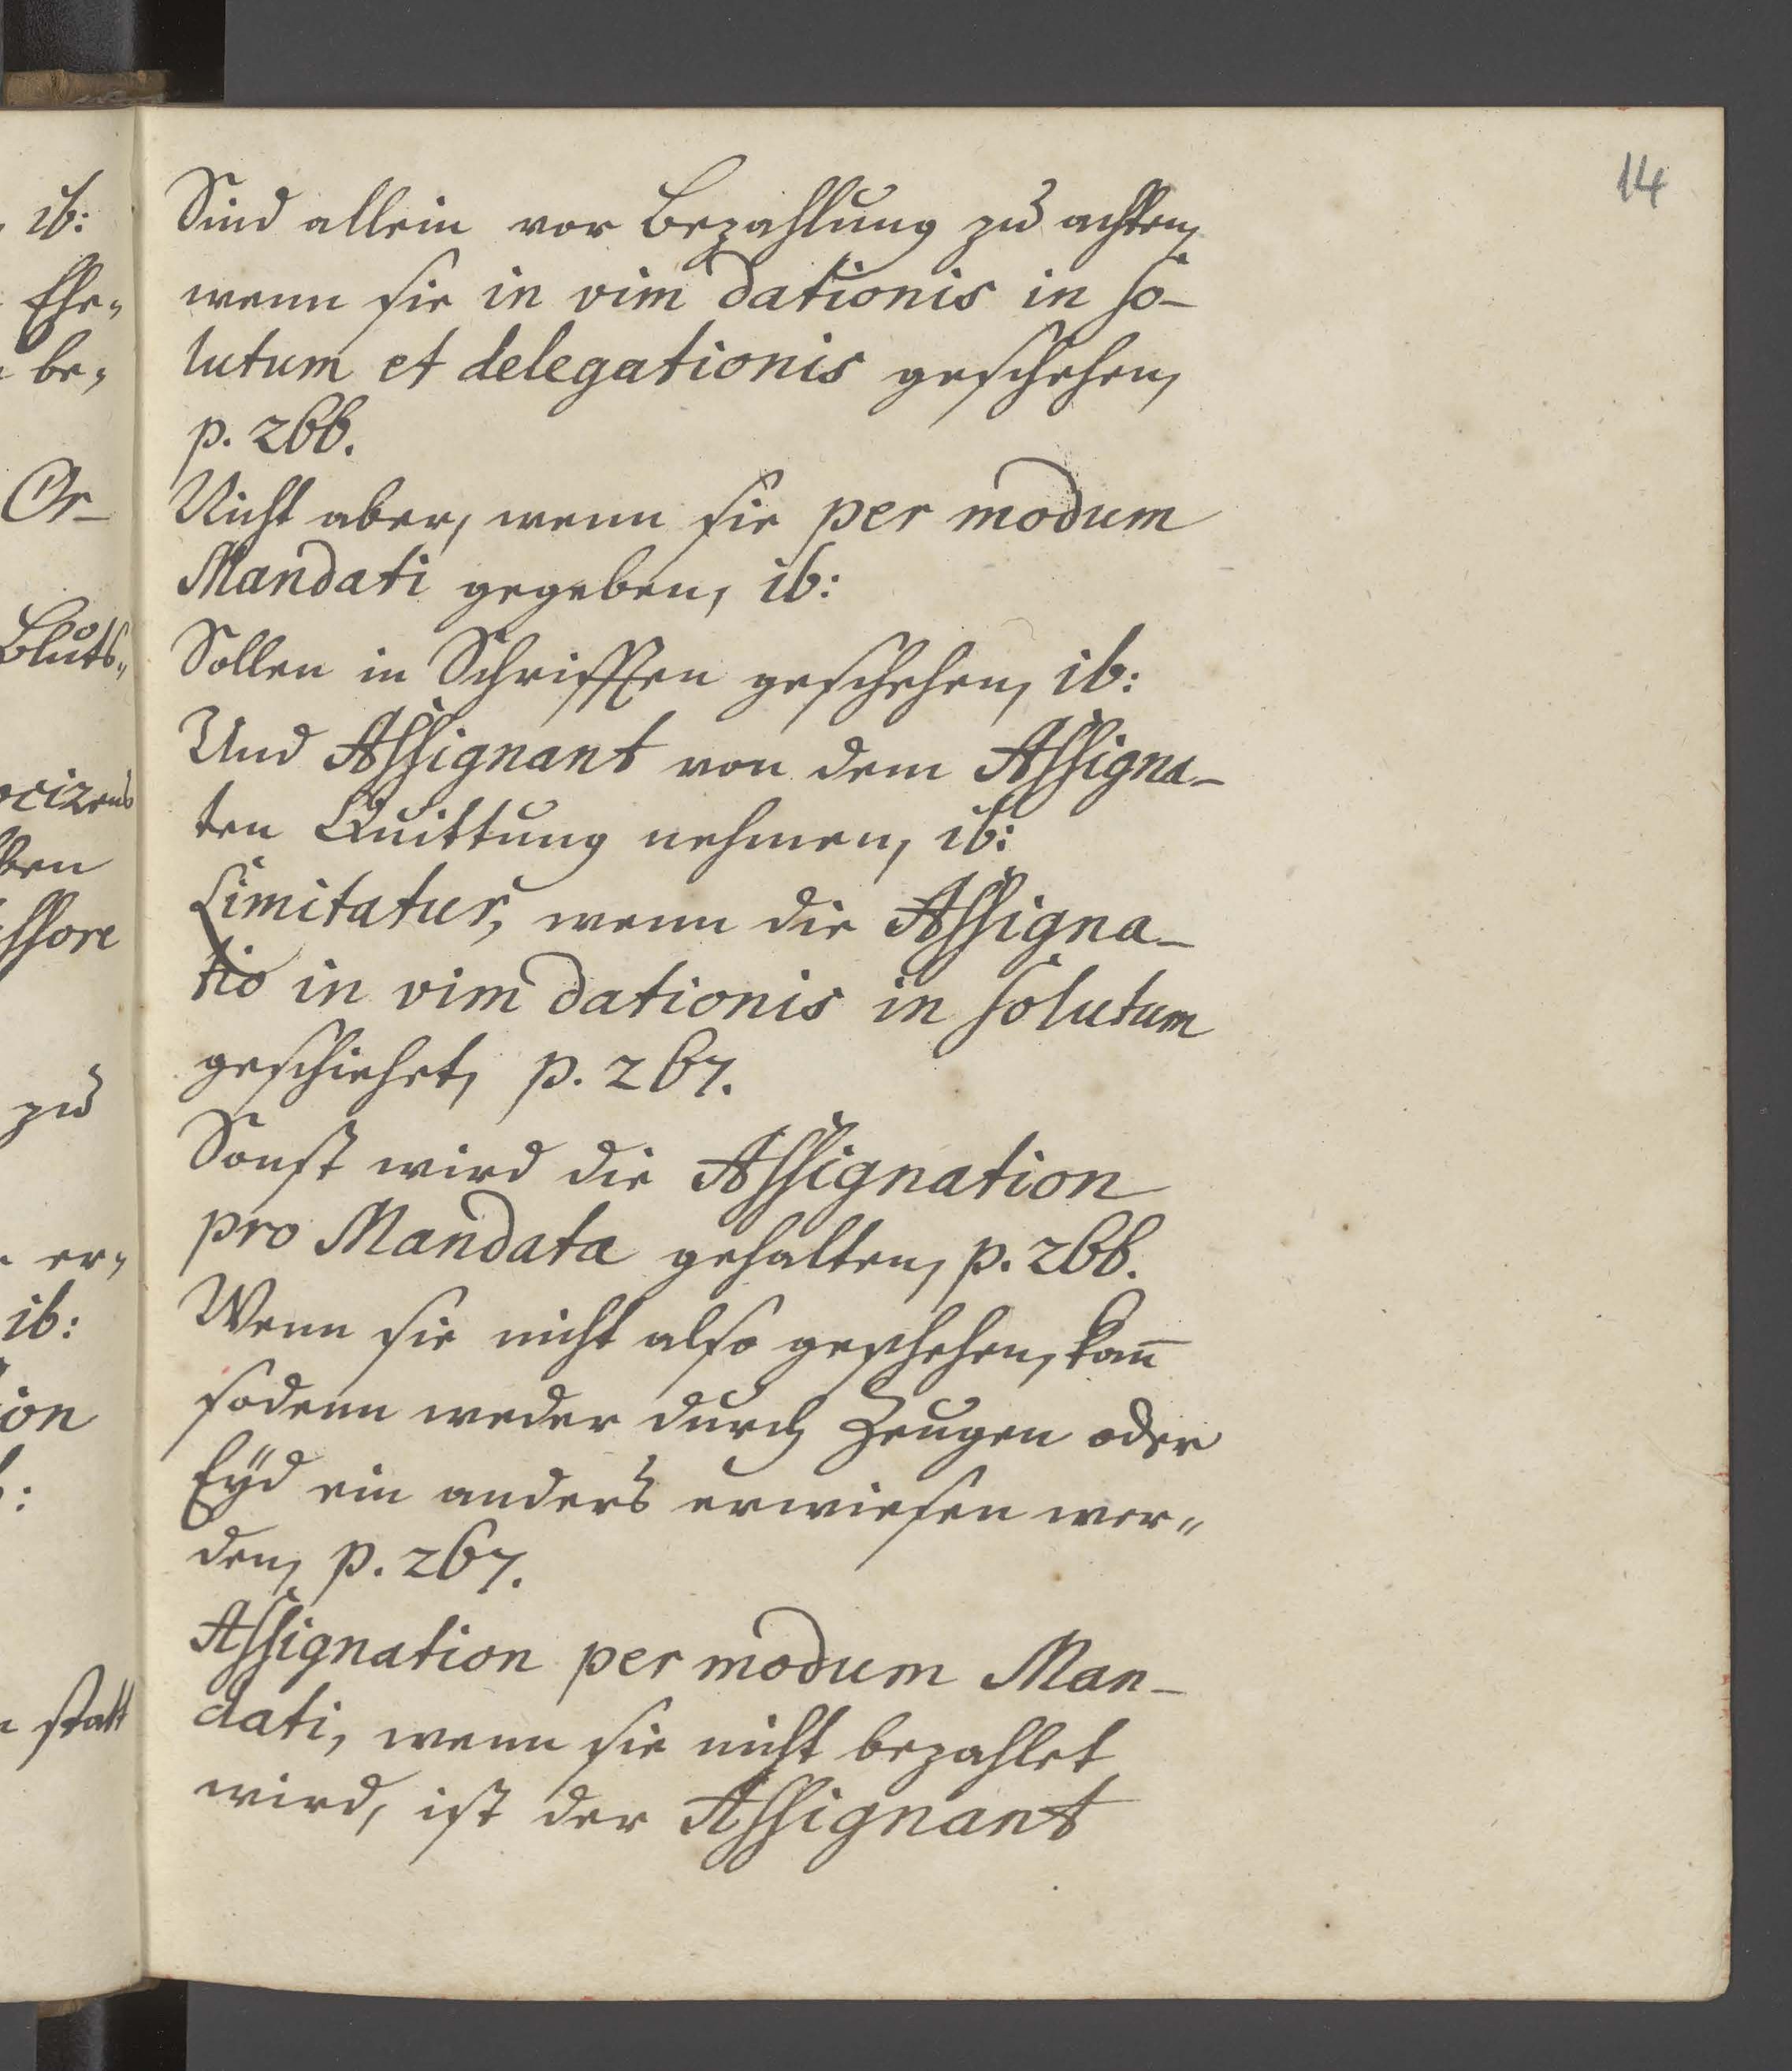 14
Sind allein vor Bezahlung zu achten,
wenn sie in vim dationis in so-
lutum et delegationis geschehen,
p. 266.
Nicht aber, wenn sie per modum
Mandati gegeben, ib:
Sollen in Schrifften geschehen, ib:
Und Assignant von dem Assigna-
ten Quittung nehmen, ib:
Limitatur, wenn die Assigna-
tio in vim dationis in solutum
geschiehet, p. 267.
Sonst wird die Assignation
pro Mandata gehalten, p. 266.
Wenn sie nicht also geschehen, kan̄
sodenn weder durch Zeugen oder
Eyd ein anders erwiesen wer„
den, p. 267.
Assignation per modum Man-
dati, wenn sie nicht bezahlet
wird, ist der Assignant
ib:
Ehe„
be„
Or-
Bluts„
ocizens
ssore
zu
er„
ib:
ion
statt